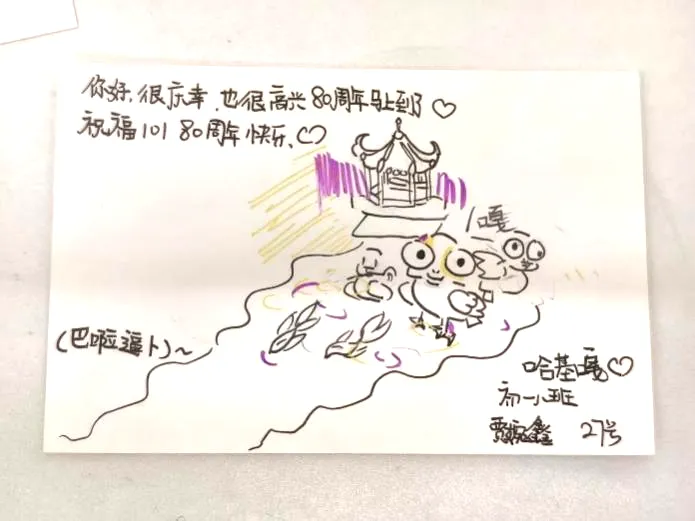 你好,很庆幸,也很高兴80周年马上到了♡
祝福101 80周年快乐.♡
嘎
(巴啦逼卜)~
哈基嘎♡
初一八班
贾婉鑫 27号